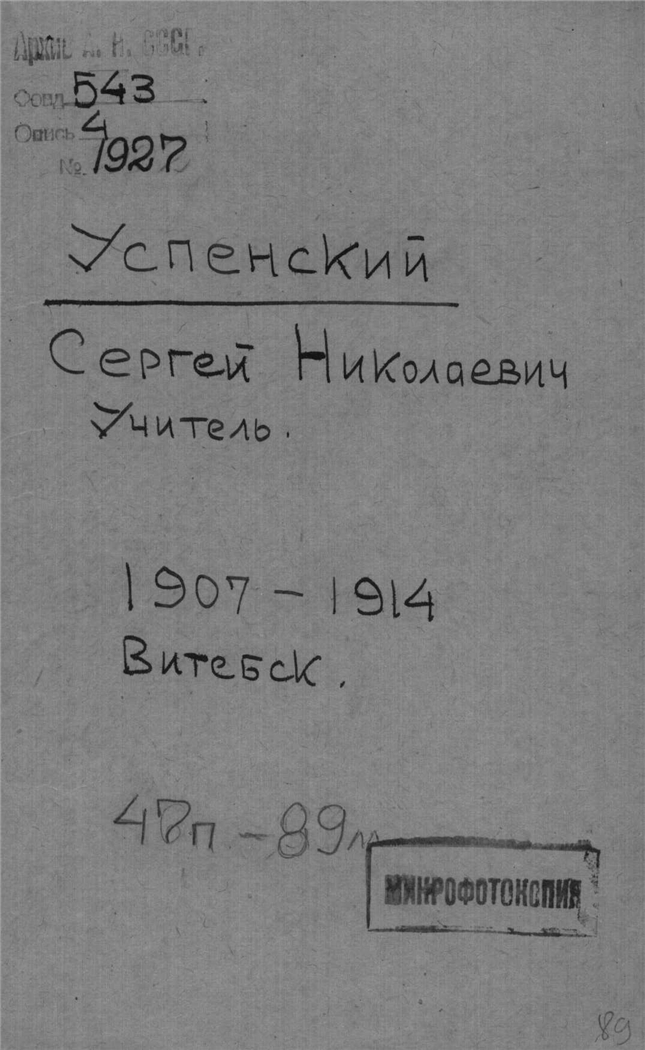 Архив А. Н. СССР.
Фонд 543
Опись 4
№ 1927
Успенский
Сергей Николаевич
Учитель.
1907 – 1914
Витебск.
47п – 89лл
МИКРОФОТОКОПИЯ
89